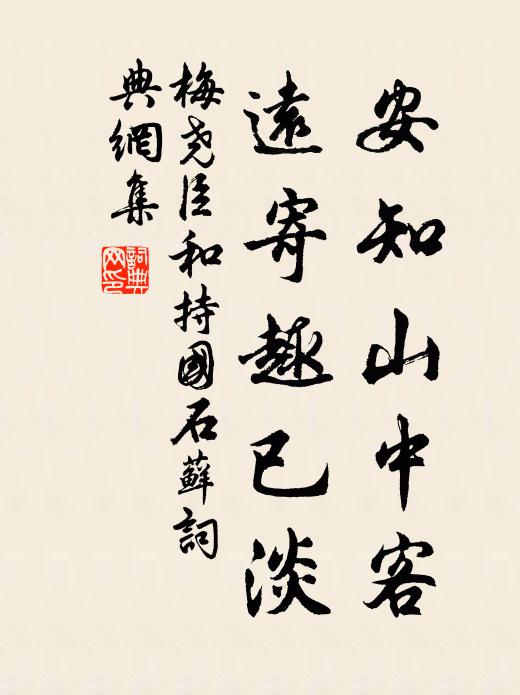 安知山中客
遠寄趣已淡
梅堯臣和持國石蘚詞
典網集
詞典
網印